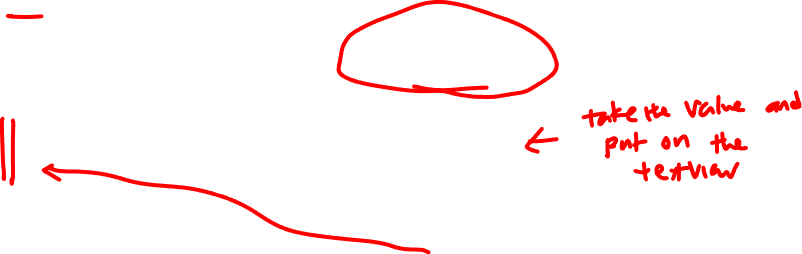 take the value and
put on the
textview